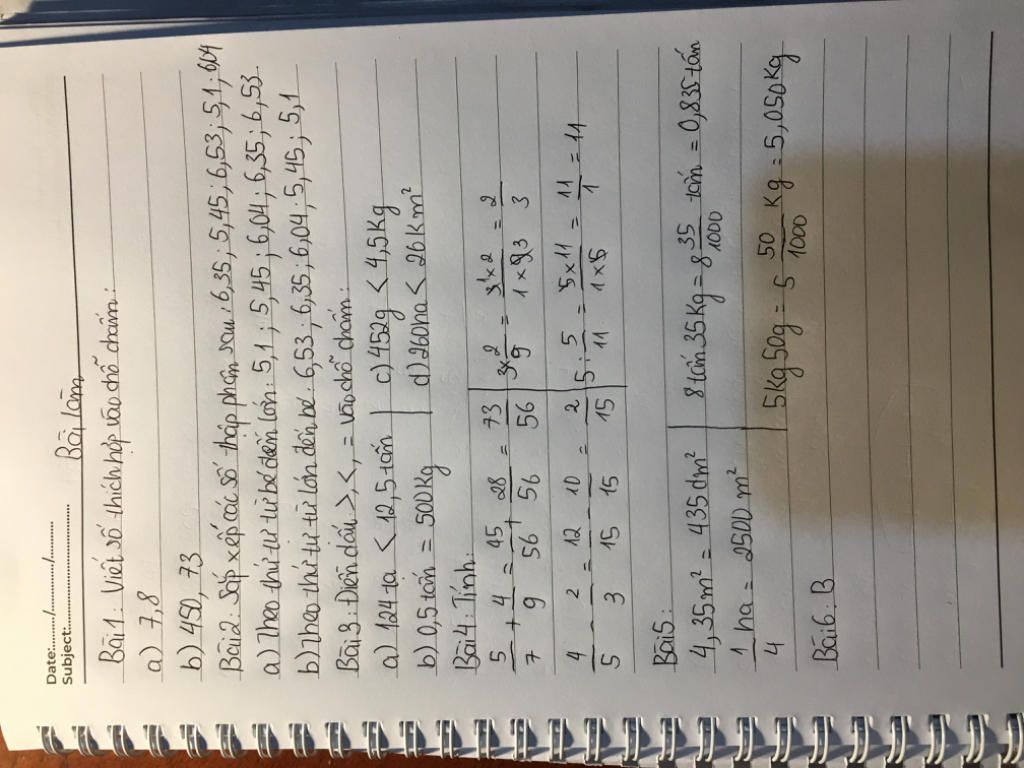 Date:........./........../..........
Subject:..............................
Bài làm
Bài 1: Viết số thích hợp vào chỗ chấm:
a) 7,8
b) 450,73
Bài 2. Sắp xếp các số thập phân sau: 6,35; 5,45; 6,53; 5,1; 6,04
a) Theo thứ tự từ bé đến lớn: 5,1; 5,45; 6,04; 6,35; 6,53.
b) Theo thứ tự từ lớn đến bé: 6,53; 6,35; 6,04; 5,45; 5,1
Bài 3: Điền dấu >, <, = vào chỗ chấm:
a) 124 tạ < 12,5 tấn c) 452g < 4,5Kg
b) 0,5 tấn = 500Kg d) 260ha < 26Km²
Bài 4: Tính:
5/7 + 4/9 = 45/56 + 28/56 = 73/56 3 × 2/9 = 3 × 2 / 1 × 9 3 = 2/3
4/5 - 2/3 = 12/15 - 10/15 = 2/15 5 : 5/11 = 5 × 11 / 1 × 5 = 11/1 = 11
Bài 5:
4,35m² = 435dm² 8 tấn 35Kg = 8 35/1000 tấn = 0,835 tấn
1/4 ha = 2500 m² 5Kg 50g = 5 50/1000 Kg = 5,050Kg
Bài 6: B